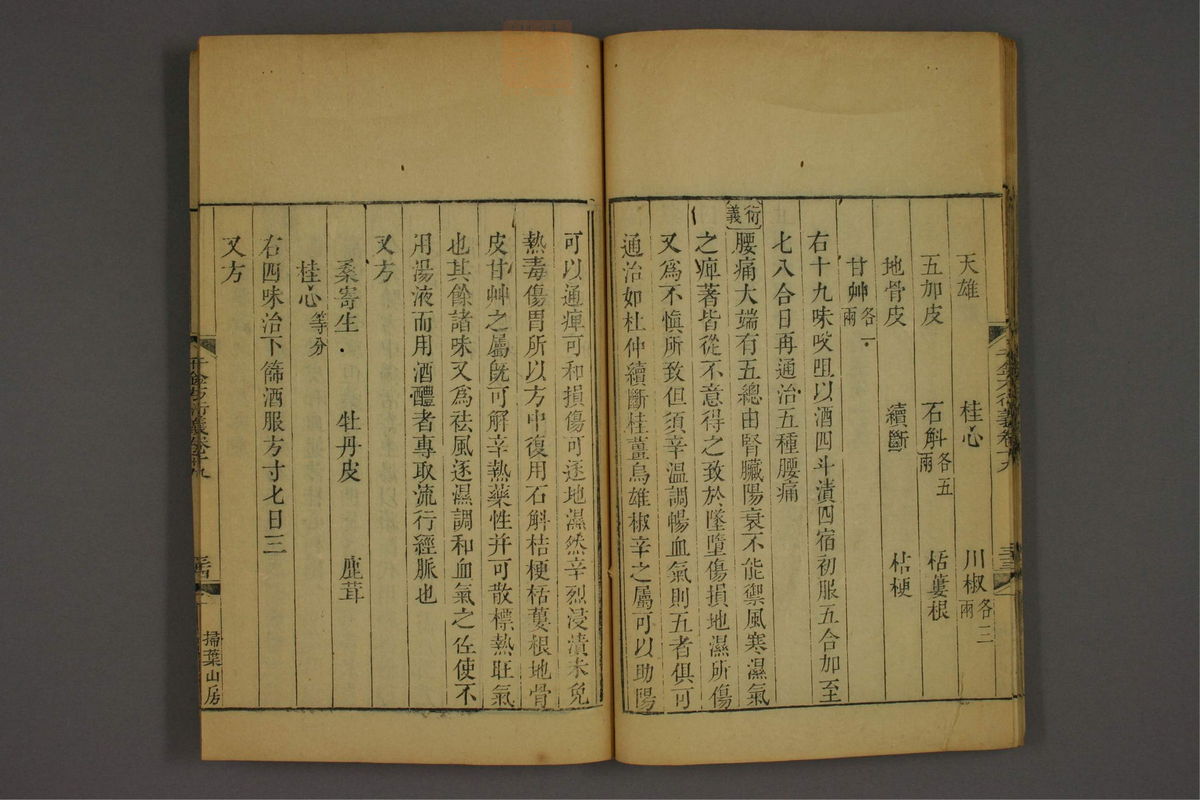 天雄 桂心 川椒各三兩
五加皮 石斛各五兩 栝蔞根
地骨皮 續斷 桔梗
甘艸各一兩
右十九味㕮咀以酒四斗漬四宿初服五合加至
七八合日再通治五種腰痛
衍義 腰痛大端有五總由腎臟陽衰不能禦風寒濕氣
之痺著皆從不意得之致於墜墮傷損地濕所傷
又爲不愼所致但須辛溫調暢血氣則五者俱可
通治如杜仲續斷桂薑烏雄椒辛之屬可以助陽
可以通痺可和損傷可逐地濕然辛烈浸漬未免
熱毒傷胃所以方中復用石斛桔梗栝蔞根地骨
皮甘艸之屬旣可解辛熱藥性并可散標熱旺氣
也其餘諸味又爲祛風逐濕調和血氣之佐使不
用湯液而用酒醴者專取流行經脈也
又方
桑寄生 牡丹皮 鹿茸
桂心等分
右四味治下篩酒服方寸匕日三
又方
千金方衍義卷十九
三十四
掃葉山房